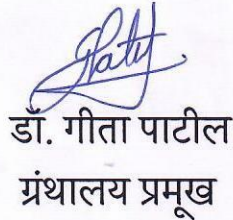 डॉ. गीता पाटील
ग्रंथालय प्रमूख